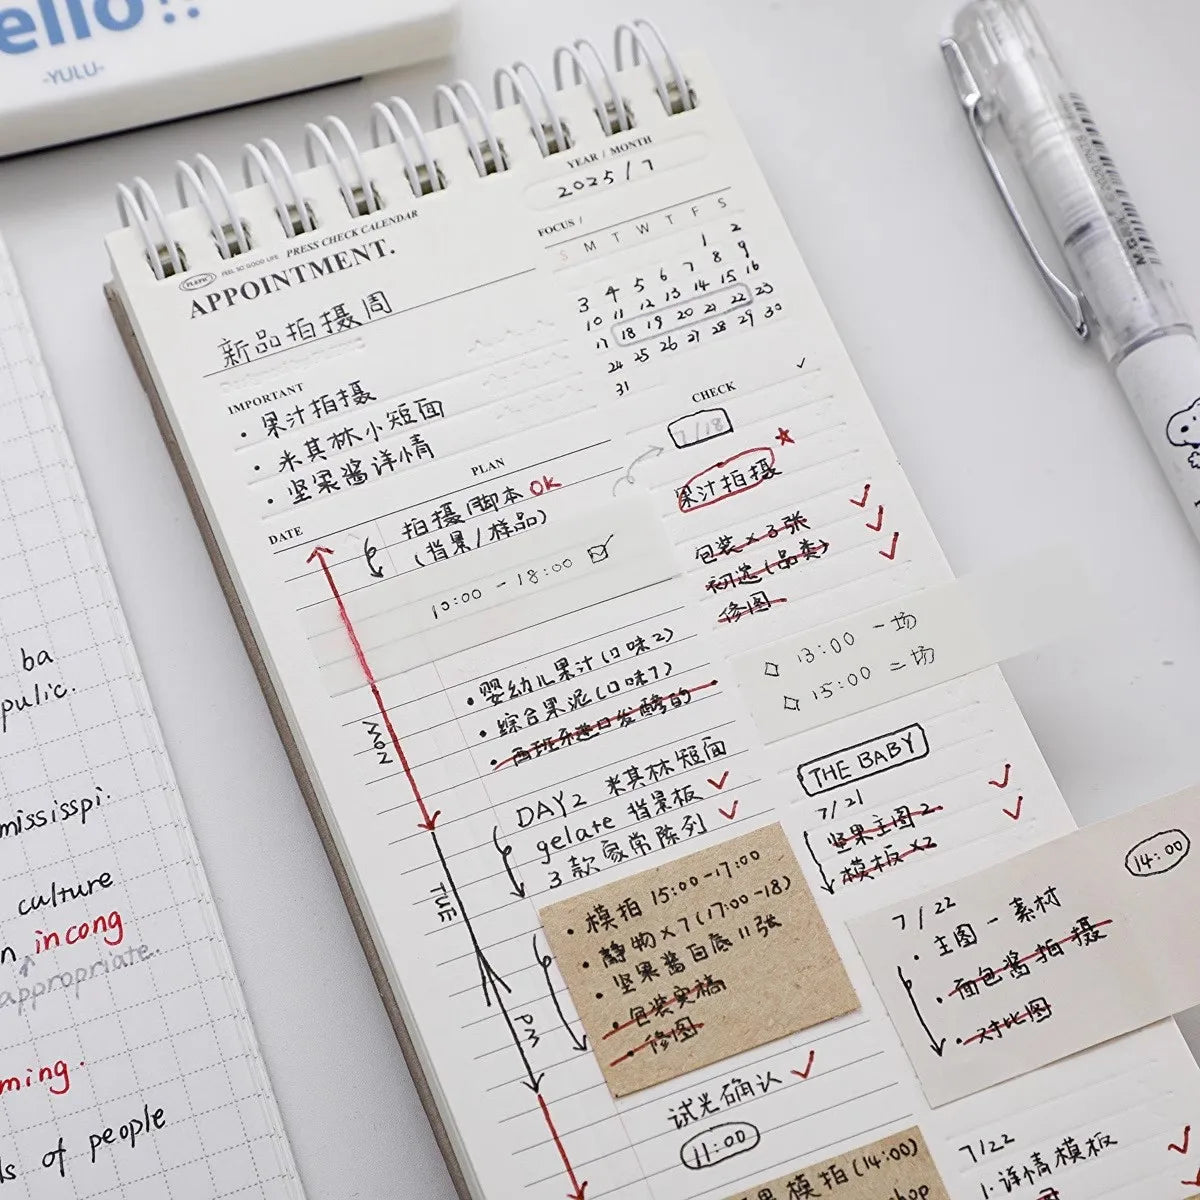 ello!!
-YULU-
YEAR / MONTH
2025 / 7
FEEL SO GOOD LIFE PRESS CHECK CALENDAR
APPOINTMENT.
新品拍摄周
FOCUS /
S M T W T F S
1 2
3 4 5 6 7 8 9
10 11 12 13 14 15 16
17 18 19 20 21 22 23
24 25 26 27 28 29 30
31
IMPORTANT
• 果汁拍摄
• 米其林小短面
• 坚果酱详情
PLAN
DATE
拍摄脚本 OK
(背景/样品)
10:00 - 18:00
• 婴幼儿果汁(口味2)
• 综合果泥(口味1)
• 西班牙进口发酵的
MON
DAY2 米其林短面
gelate 背景板
3款家常陈列
TUE
• 模拍 15:00-17:00
• 静物×7(17:00-18)
• 坚果酱白底11张
• 包装实稿
• 修图
PM
试光确认
11:00
果模拍(14:00)
hop
CHECK
7/18
果汁拍摄
包装×3张
初选(品类)
修图
13:00 一场
15:00 二场
THE BABY
7/21
坚果主图2
模板×2
14:00
7/22
• 主图-素材
• 面包酱拍摄
• 对比图
7/22
1.详情模板
ba
pulic.
mississpi.
culture
n incong
appropriate.
ming.
ls of people